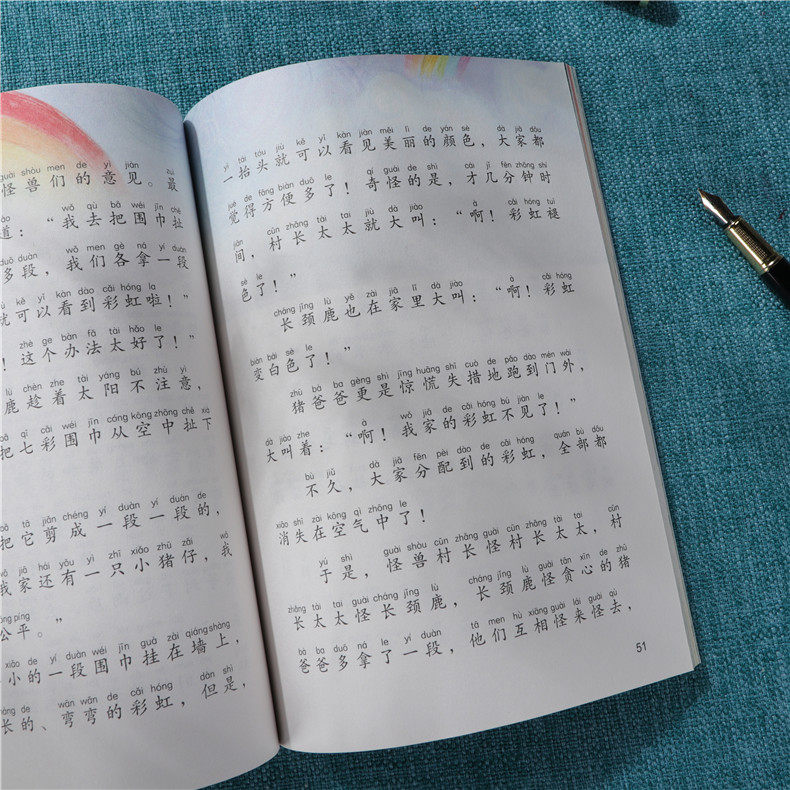 guài shòu men de yì jiàn zuì
怪兽们的意见。最
wǒ qù bǎ wéi jīn chě
道：“我去把围巾扯
duō duàn wǒ men gè ná yí duàn
多段，我们各拿一段
jiù kě yǐ kàn dào cǎi hóng la
就可以看到彩虹啦！”
zhè ge bàn fǎ tài hǎo le
！这个办法太好了！”
lù chèn zhe tài yáng bú zhù yì
鹿趁着太阳不注意，
bǎ qī cǎi wéi jīn cóng kōng zhōng chě xià
把七彩围巾从空中扯下
bǎ tā jiǎn chéng yí duàn yí duàn de
把它剪成一段一段的，
wǒ jiā hái yǒu yì zhī xiǎo zhū zǎi wǒ
我家还有一只小猪仔，我
gōng píng
公平。”
xiǎo de yí duàn wéi jīn guà zài qiáng shàng
小的一段围巾挂在墙上，
cháng de wān wān de cǎi hóng dàn shì
长的、弯弯的彩虹，但是，
yì tái tóu jiù kě yǐ kàn jiàn měi lì de yán sè dà jiā dōu
一抬头就可以看见美丽的颜色，大家都
jué de fāng biàn duō le qí guài de shì cái jǐ fēn zhōng shí
觉得方便多了！奇怪的是，才几分钟时
jiān cūn zhǎng tài tai jiù dà jiào à cǎi hóng tuì
间，村长太太就大叫：“啊！彩虹褪
sè le
色了！”
cháng jǐng lù yě zài jiā lǐ dà jiào à cǎi hóng
长颈鹿也在家里大叫：“啊！彩虹
biàn bái sè le
变白色了！”
zhū bà ba gèng shì jīng huāng shī cuò de pǎo dào mén wài
猪爸爸更是惊慌失措地跑到门外，
dà jiào zhe à wǒ jiā de cǎi hóng bú jiàn le
大叫着：“啊！我家的彩虹不见了！”
bù jiǔ dà jiā fēn pèi dào de cǎi hóng quán bù dōu
不久，大家分配到的彩虹，全部都
xiāo shī zài kōng qì zhōng le
消失在空气中了！
yú shì guài shòu cūn zhǎng guài cūn zhǎng tài tai cūn
于是，怪兽村长怪村长太太，村
zhǎng tài tai guài cháng jǐng lù cháng jǐng lù guài tān xīn de zhū
长太太怪长颈鹿，长颈鹿怪贪心的猪
bà ba duō ná le yí duàn tā men hù xiāng guài lái guài qù
爸爸多拿了一段，他们互相怪来怪去，
51